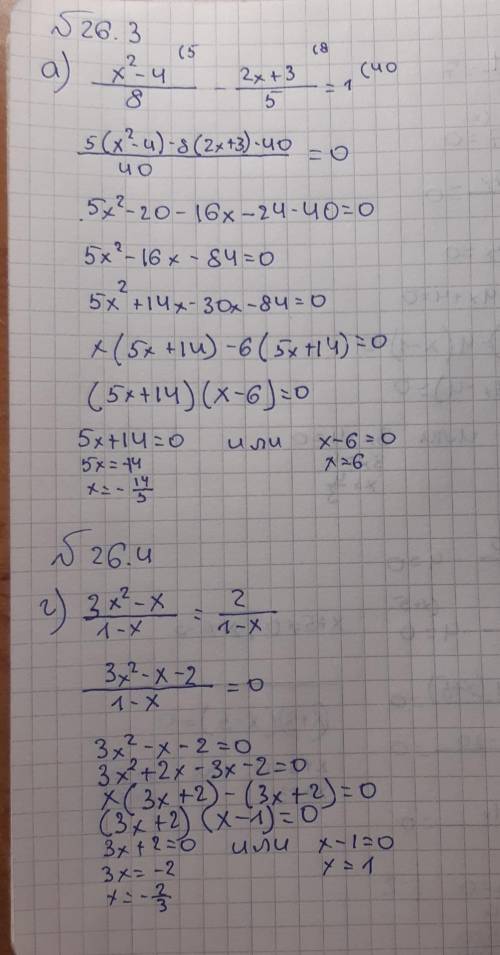 № 26.3
а) (x² - 4)/8 (5 - (2x + 3)/5 (8 = 1 (40
(5(x² - 4) - 8(2x+3) - 40)/40 = 0
5x² - 20 - 16x - 24 - 40 = 0
5x² - 16x - 84 = 0
5x² + 14x - 30x - 84 = 0
x(5x + 14) - 6(5x + 14) = 0
(5x + 14)(x - 6) = 0
5x + 14 = 0 или x - 6 = 0
5x = -14 x = 6
x = - 14/5
№ 26.4
г) (3x² - x)/(1 - x) = 2/(1 - x)
(3x² - x - 2)/(1 - x) = 0
3x² - x - 2 = 0
3x² + 2x - 3x - 2 = 0
x(3x + 2) - (3x + 2) = 0
(3x + 2)(x - 1) = 0
3x + 2 = 0 или x - 1 = 0
3x = -2 x = 1
x = - 2/3